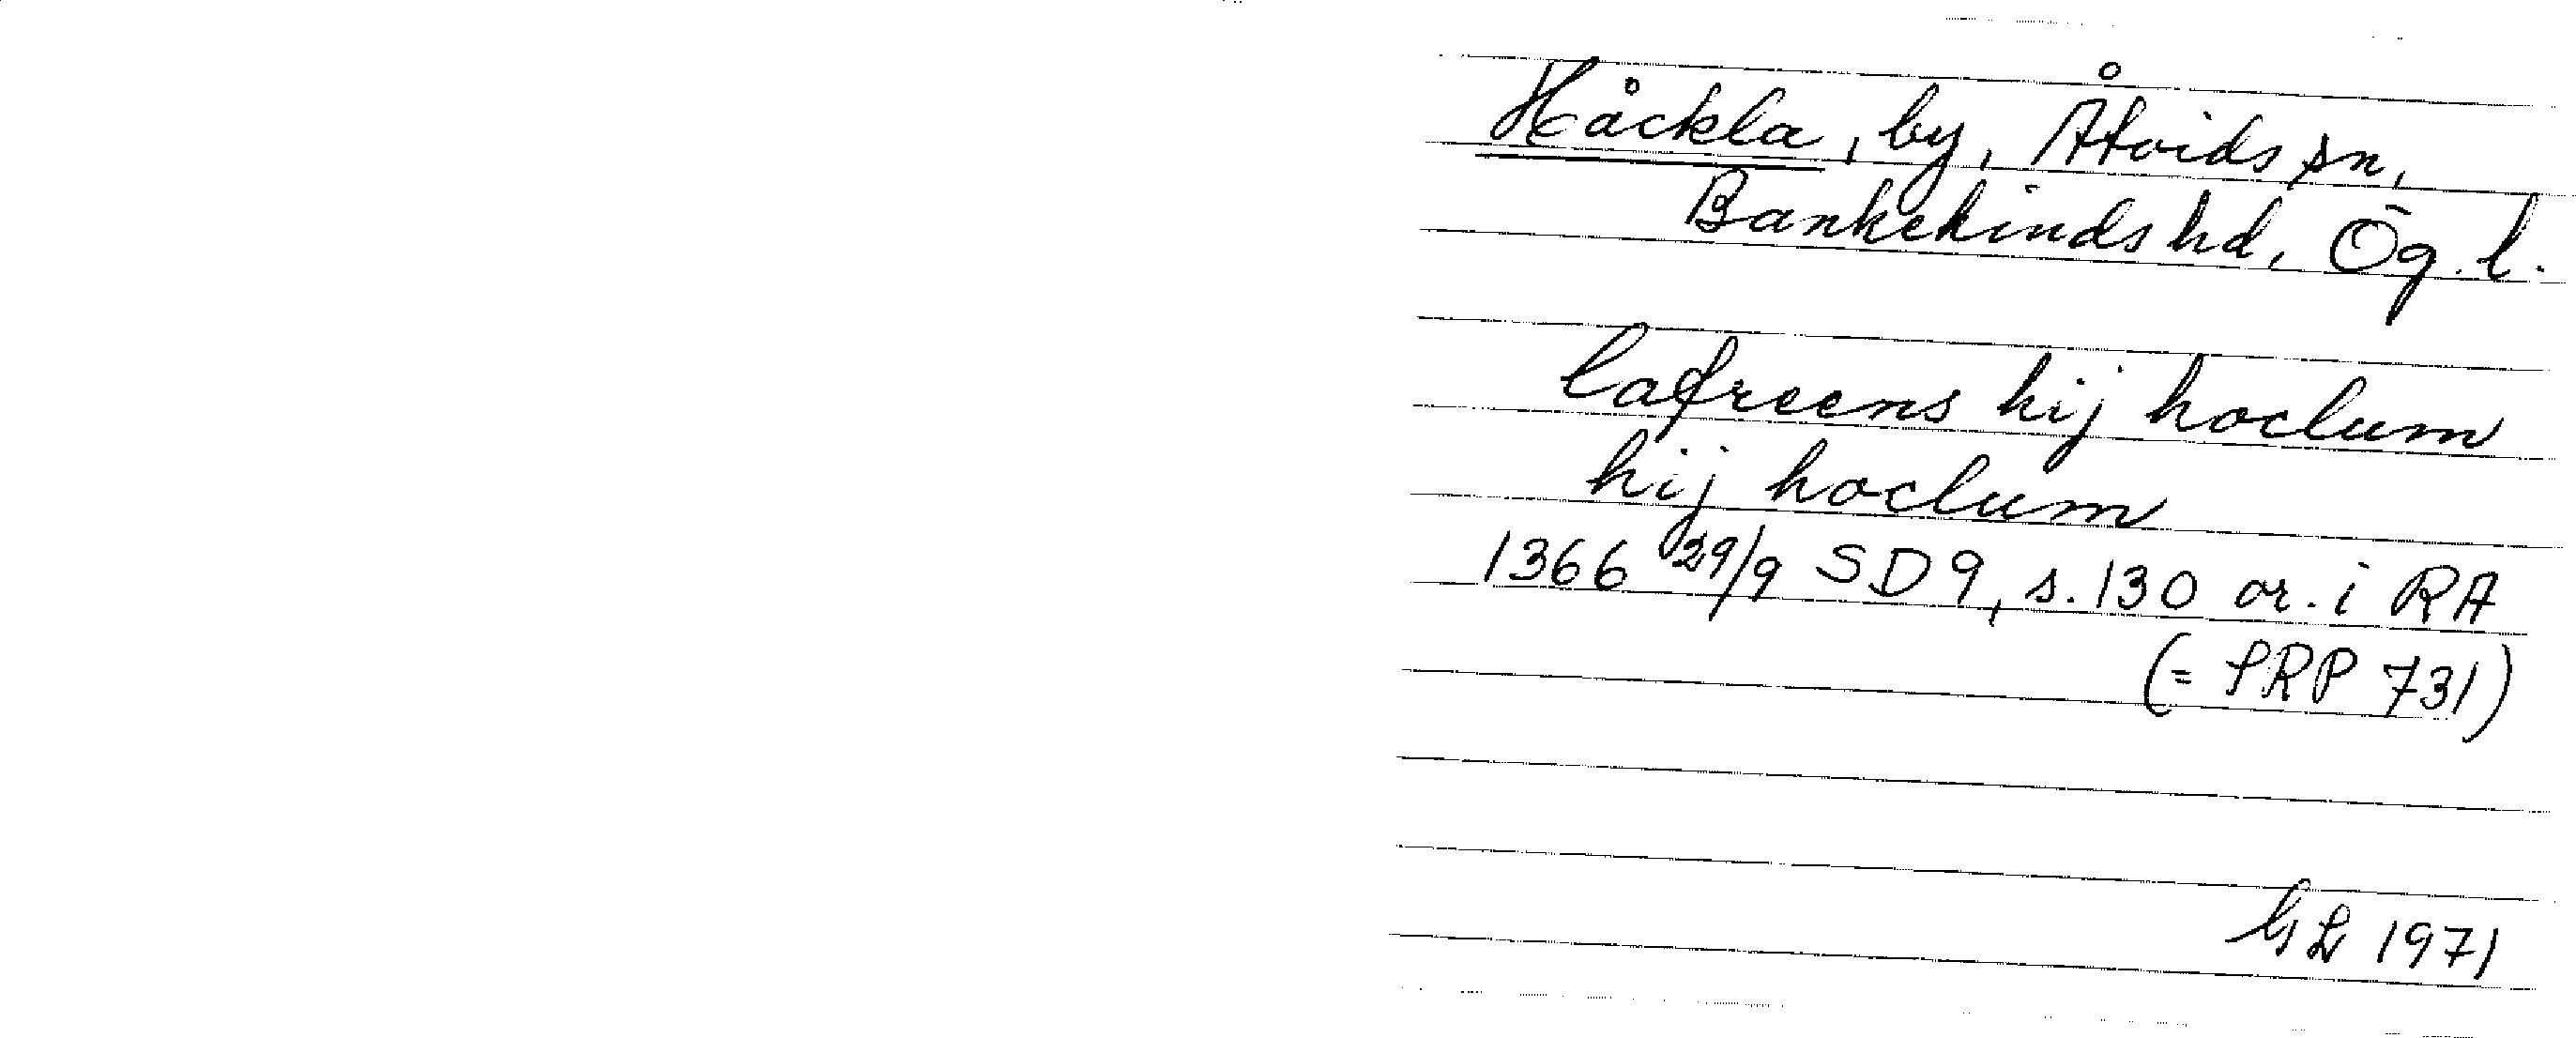 Håckla, by, Åtvids sn,
Bankekinds hd, Ög. l.
lafreens hij hoclum
hij hoclum
1366 29/9 SD 9, s. 130 or. i RA
(= PRP 731)
GL 1971